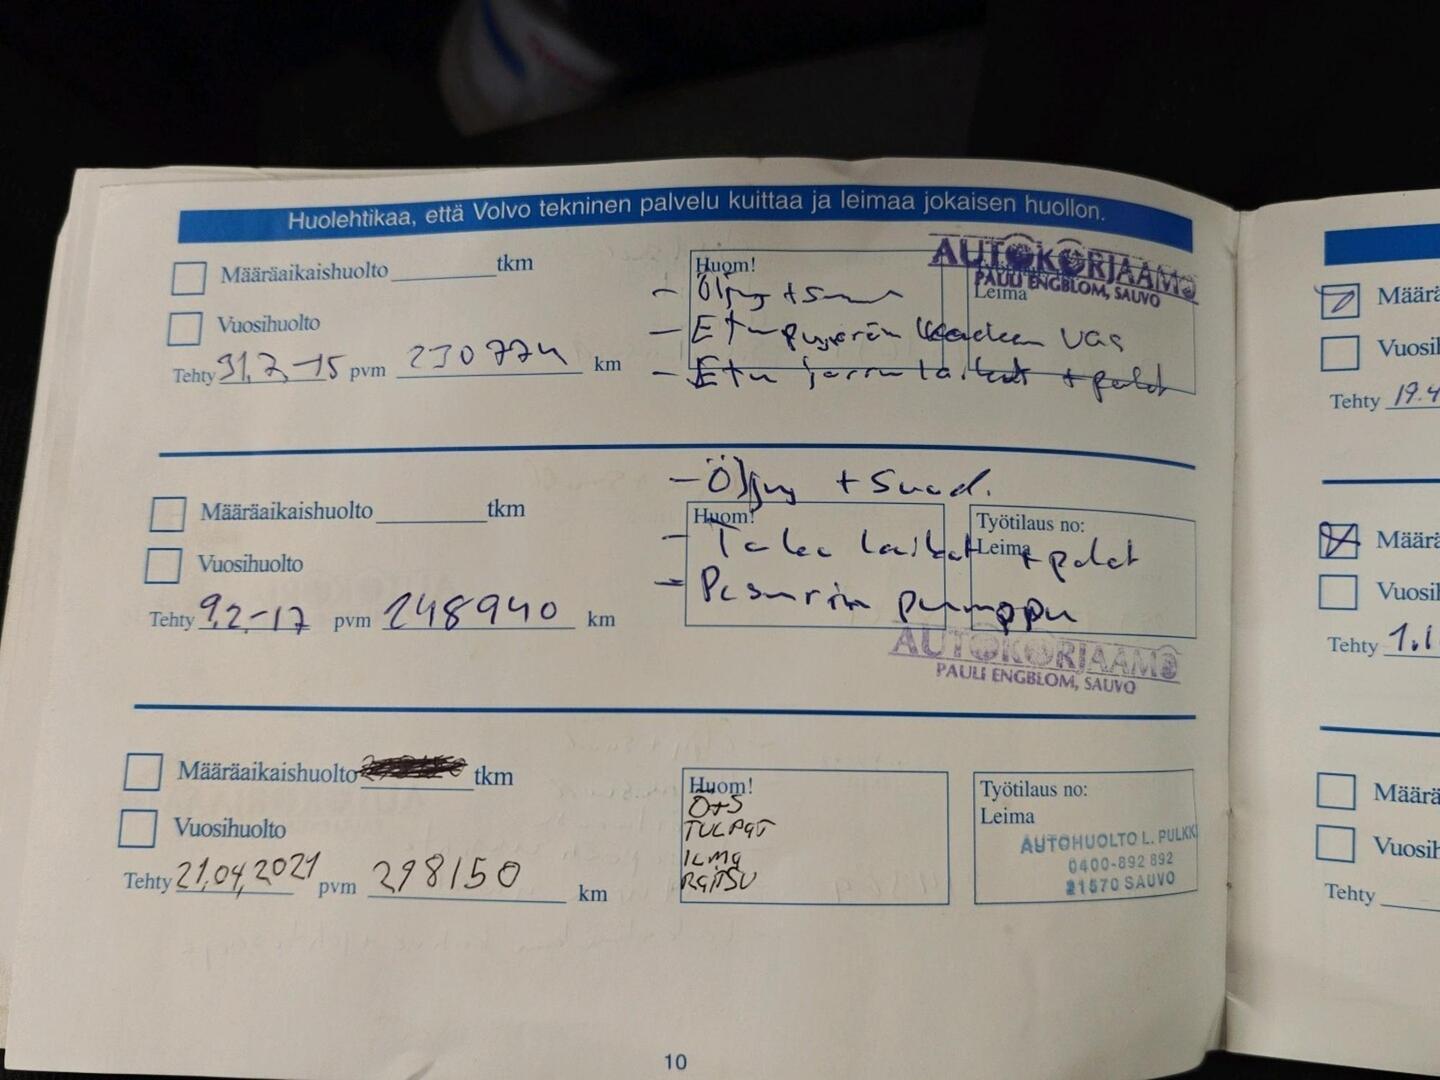 Huolehtikaa, että Volvo tekninen palvelu kuittaa ja leimaa jokaisen huollon.
Määräaikaishuolto ________ tkm
Vuosihuolto
Tehty 31.7-15 pvm 230774 km
Huom!
Leima
AUTOKORJAAMO
PAULI ENGBLOM, SAUVO
- Öljyy +
- Etu pyörän vas
- Etu jarru laikat + palat
Määräaikaishuolto ________ tkm
Vuosihuolto
Tehty 9.2.-17 pvm 248940 km
- Öljyy + suod.
Huom!
- Taka laikat + palat
- Pesurin pumppu
Työtilaus no:
Leima
AUTOKORJAAMO
PAULI ENGBLOM, SAUVO
Määräaikaishuolto tkm
Vuosihuolto
Tehty 21.04.2021 pvm 298150 km
Huom!
Ö+S
TULPAT
ILMA
RAITISU
Työtilaus no:
Leima
AUTOHUOLTO L. PULKK
0400-892 892
21570 SAUVO
10
Määrä
Vuosi
Tehty 19.4
Määrä
Vuosi
Tehty 1.1
Määrä
Vuosih
Tehty